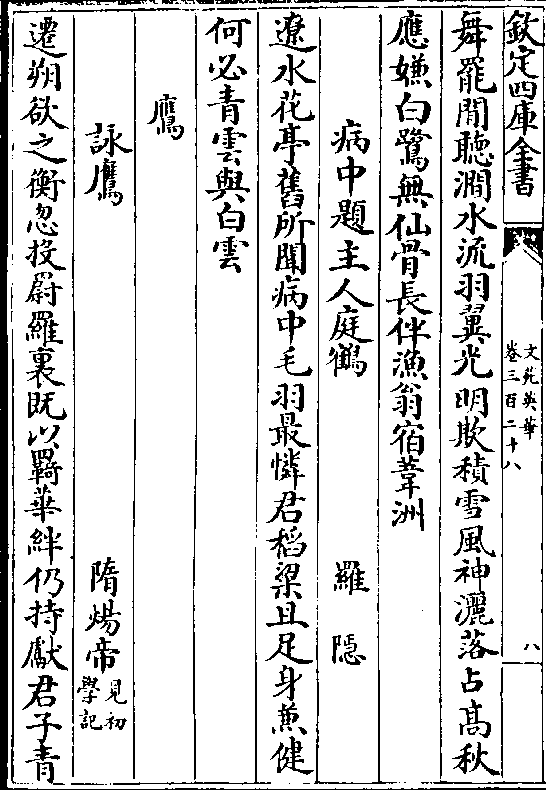 欽定四庫全書
文苑英華
卷三百二十八
八
舞罷閒聽澗水流羽翼光明欺積雪風神灑落占髙秋
應嫌白鷺無仙骨長伴漁翁宿葦洲
病中題主人庭鶴 羅隠
遼水花亭舊所聞病中毛羽最憐君稻粱且足身兼健
何必青雲與白雲
鷹
詠鷹 隋煬帝見初學記
遷朔欲之衡忽投罻羅裏既以羈華絆仍持獻君子青